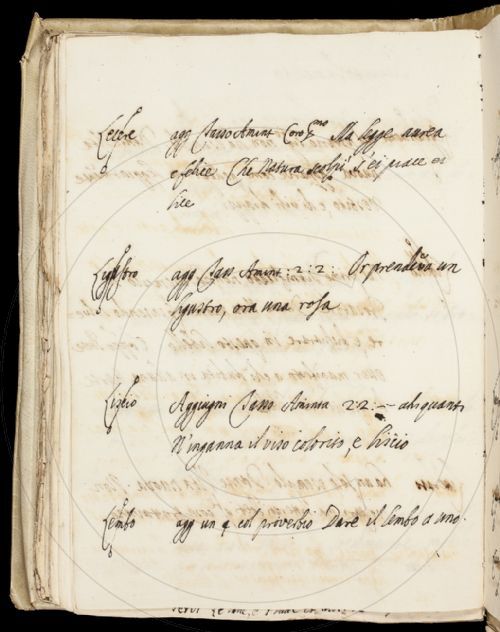 Lecere agg Tasso Amint Coro p.mo Ma legge aurea
e felice Che Natura scolpì S'ei piace ei
lice
Ligustro agg Tass Amint: 2: 2: Or prendeva un
ligustro, ora una rosa
Liscio Aggiugni Tasso Aminta 2:2: — ahi quanti
N'inganna il viso colorito, e liscio
Lembo agg un § col proverbio Dare il lembo a uno.